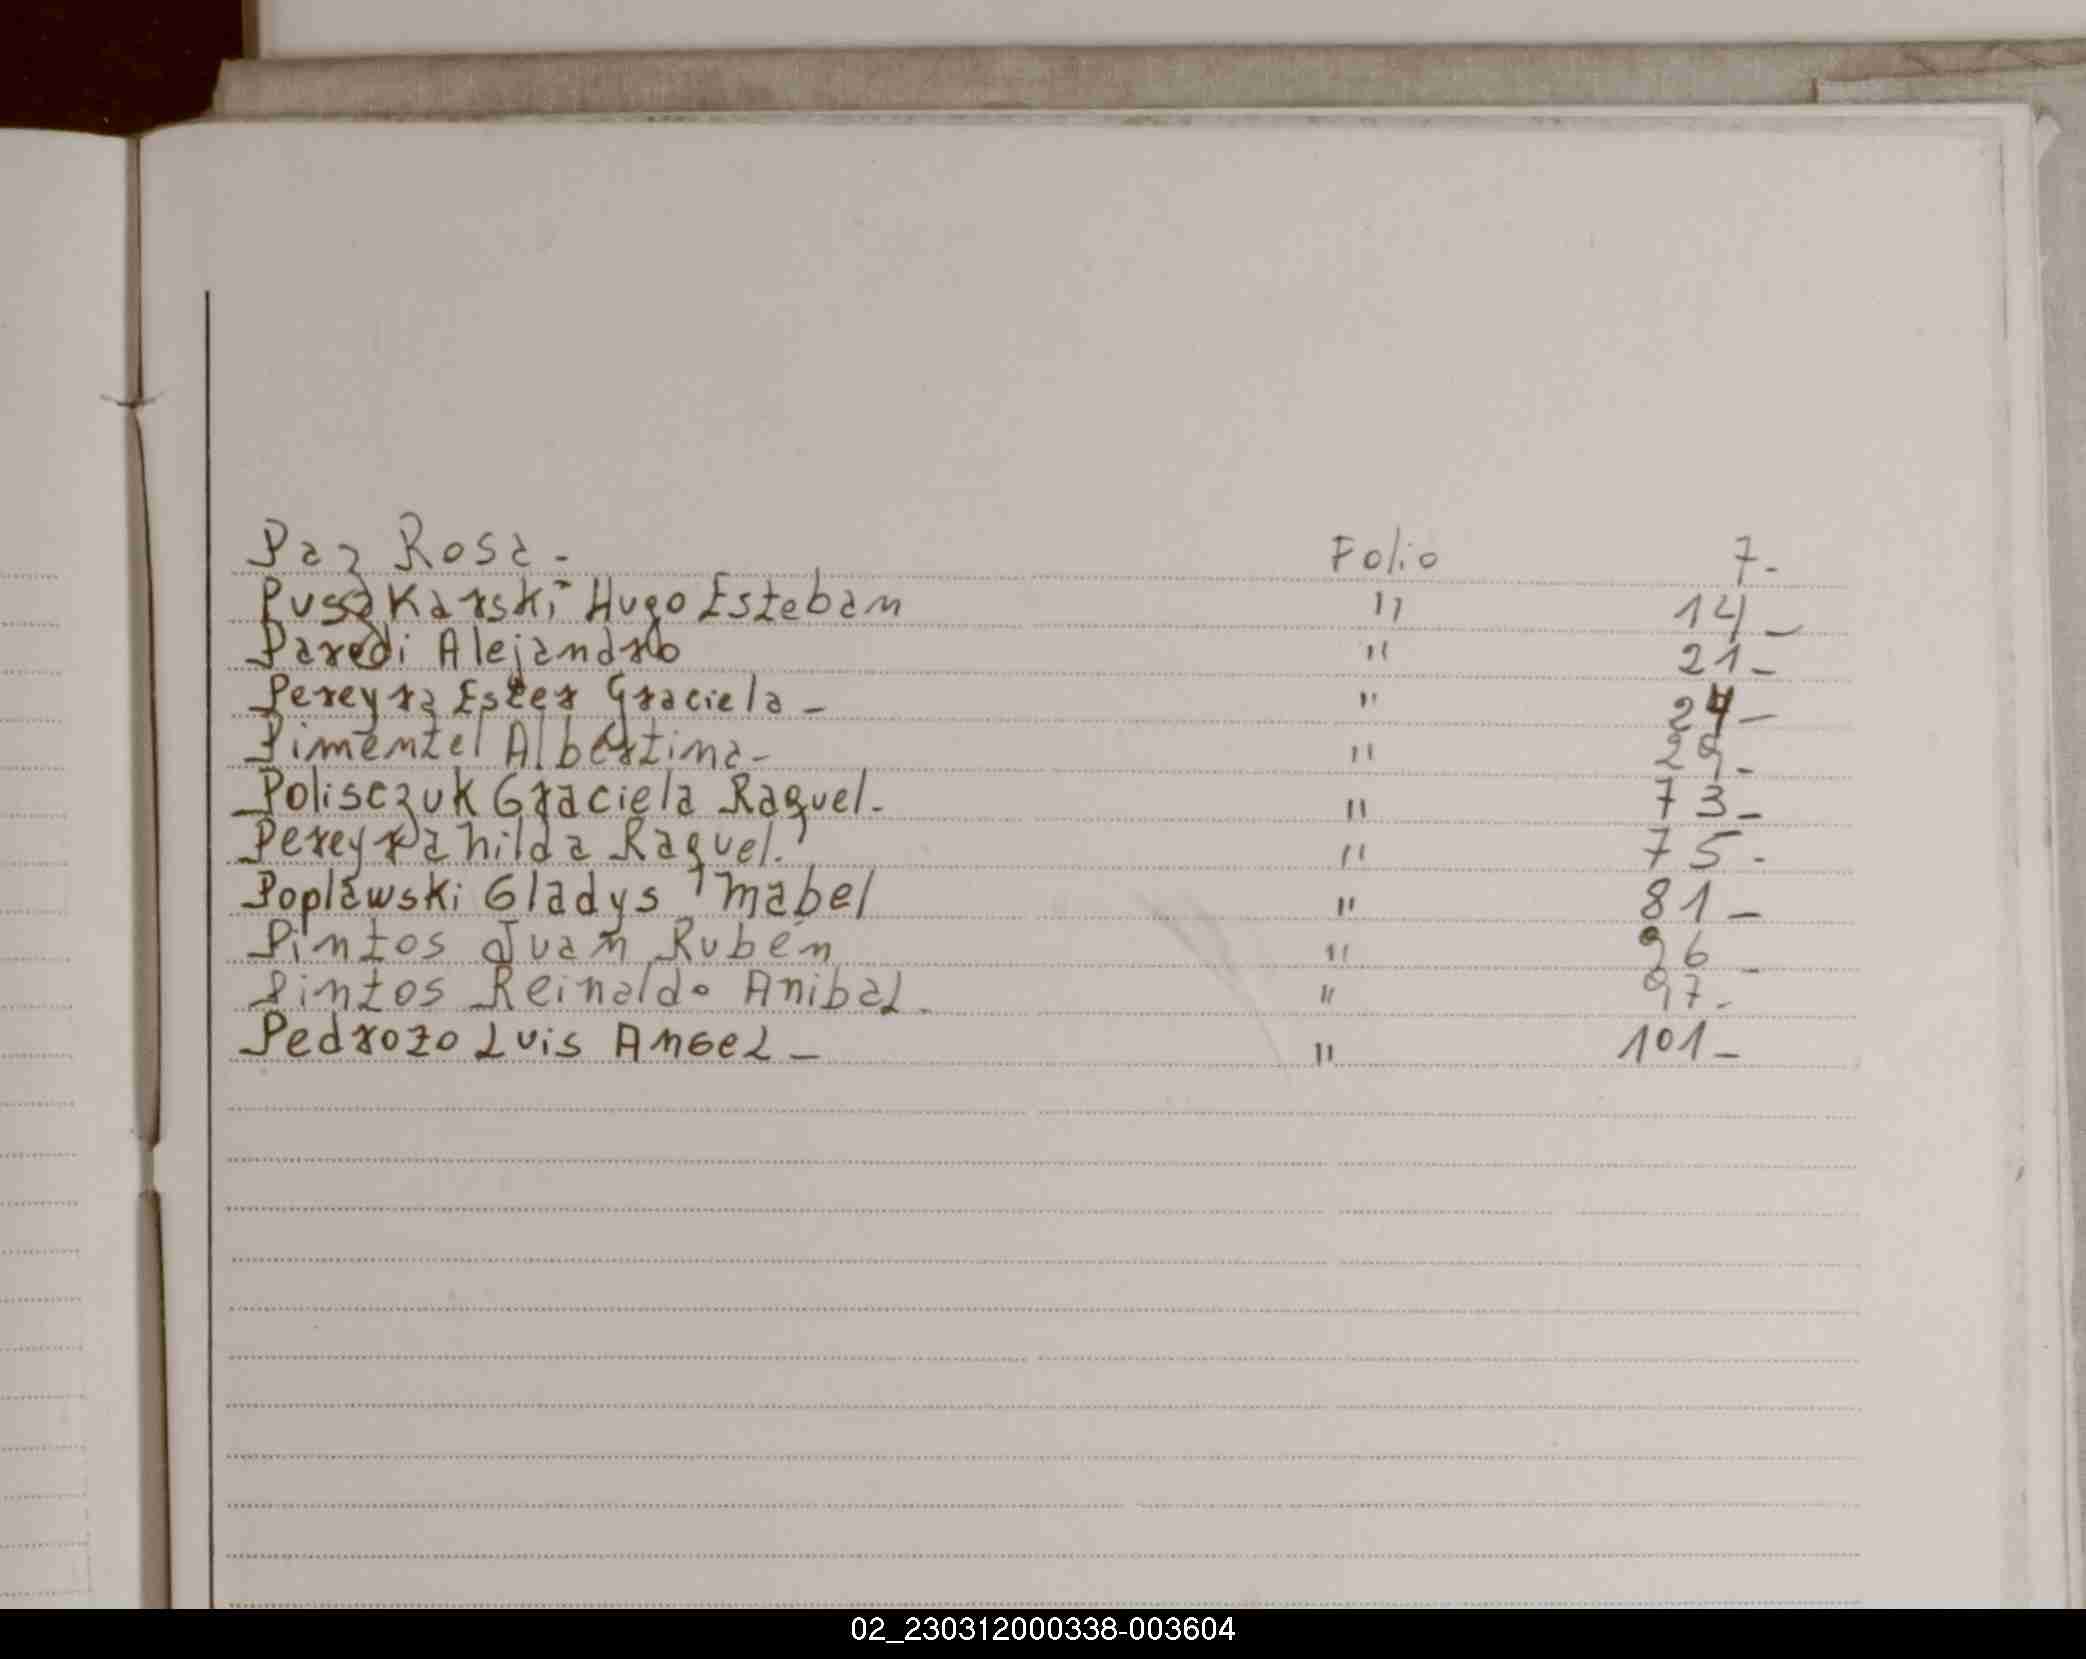 Paz Rosa - Folio 7-
Puszkarski Hugo Esteban " 14-
Paredi Alejandro " 21-
Pereyra Ester Graciela - " 24-
Pimentel Albertina- " 29-
Polisczuk Graciela Raquel- " 73-
Pereyra hilda Raquel. " 75-
Poplawski Gladys Mabel " 81-
Pintos Juan Rubén " 96-
Pintos Reinaldo Anibal - " 97-
Pedrozo Luis Angel - " 101-
02_230312000338-003604